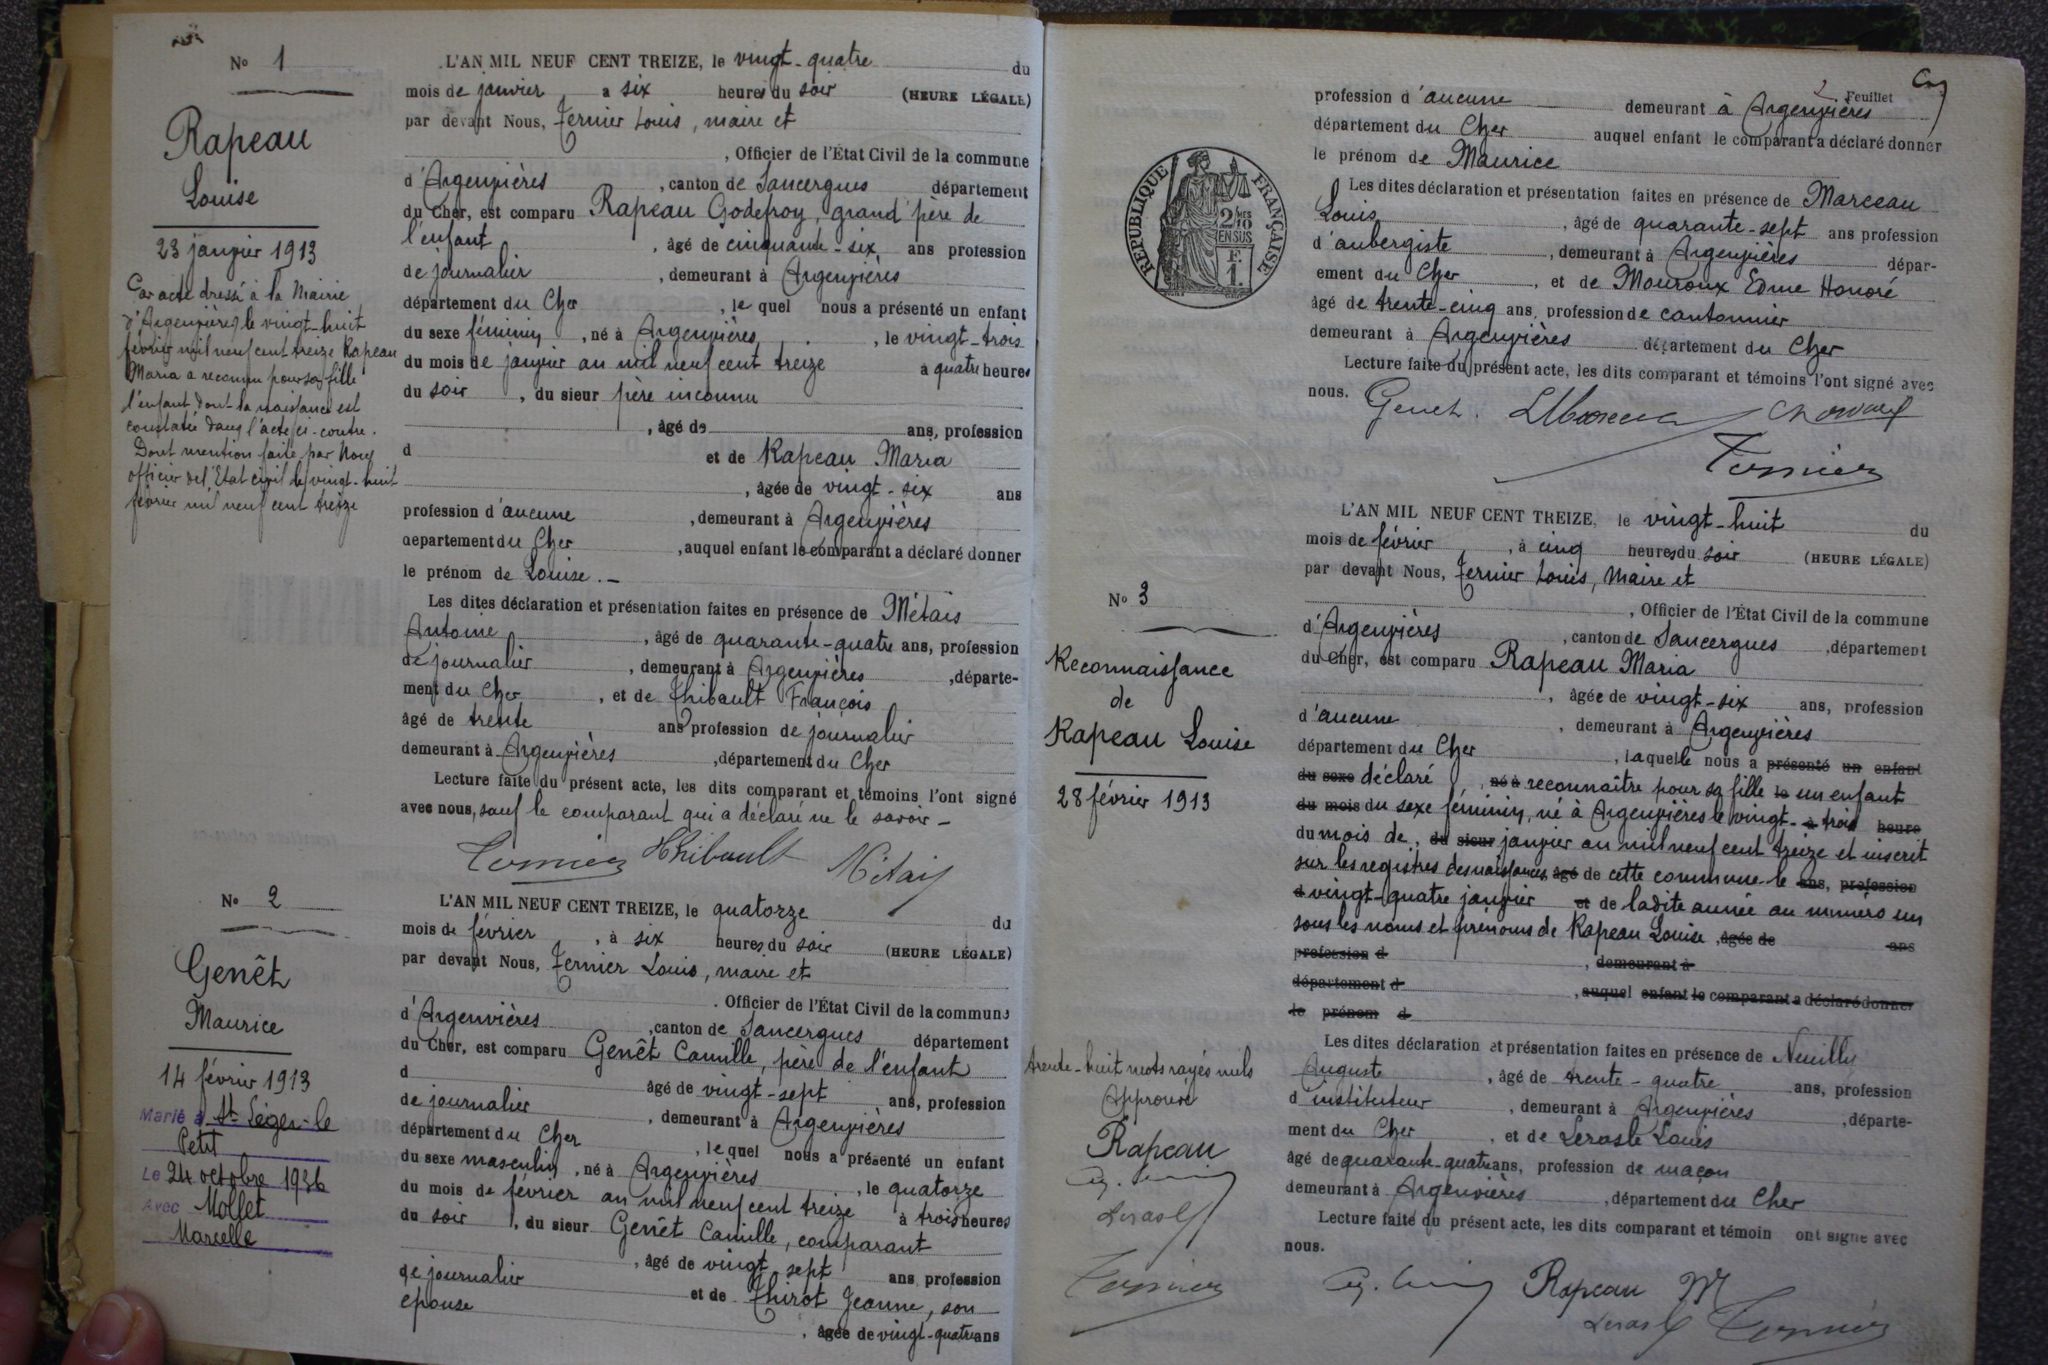 N° 1
Rapeau
Louise
23 janvier 1913
Par acte dressé à la Mairie
d'Argenvières le vingt-huit
février mil neuf cent treize Rapeau
Maria a reconnu pour sa fille
l'enfant dont la naissance est
constatée dans l'acte ci-contre.
Dont mention faite par Nous
officier de l'Etat civil le vingt-huit
février mil neuf cent treize
L'AN MIL NEUF CENT TREIZE, le vingt-quatre du
mois de janvier a six heures du soir (HEURE LÉGALE)
par devant Nous, Ternier Louis, maire et
, Officier de l'État Civil de la commune
d'Argenvières, canton de Sancergues département
du Cher, est comparu Rapeau Godefroy, grand père de
l'enfant, âgé de cinquante-six ans profession
de journalier, demeurant à Argenvières
département du Cher, le quel nous a présenté un enfant
du sexe féminin, né à Argenvières, le vingt-trois
du mois de janvier an mil neuf cent treize a quatre heures
du soir, du sieur père inconnu
, âgé de ans, profession
d et de Rapeau Maria
, âgée de vingt-six ans
profession d'aucune, demeurant à Argenvières
departement du Cher, auquel enfant le comparant a déclaré donner
le prénom de Louise. –
Les dites déclaration et présentation faites en présence de Métais
Antoine, âgé de quarante-quatre ans, profession
de journalier, demeurant à Argenvières, départe-
ment du Cher, et de Thibault François
âgé de trente ans profession de journalier
demeurant à Argenvières, département du Cher
Lecture faite du présent acte, les dits comparant et témoins l'ont signé
avec nous, sauf le comparant qui a déclaré ne le savoir –
Ternier Thibault Métais
N° 2
Genêt
Maurice
14 février 1913
Marié à St Léger-le
Petit
Le 24 octobre 1936
Avec Mollet
Marcelle
L'AN MIL NEUF CENT TREIZE, le quatorze du
mois de février, à six heures du soir (HEURE LÉGALE)
par devant Nous, Ternier Louis, maire et
. Officier de l'État Civil de la commune
d'Argenvières, canton de Sancergues département
du Cher, est comparu Genêt Camille, père de l'enfant
d âgé de vingt-sept ans, profession
de journalier, demeurant à Argenvières
département du Cher, le quel nous a présenté un enfant
du sexe masculin, né à Argenvières, le quatorze
du mois de février an mil neuf cent treize à trois heures
du soir, du sieur Genêt Camille, comparant
, âgé de vingt-sept ans profession
de journalier et de Thirot Jeanne, son
épouse
, âgée de vingt-quatre ans
2 Feuillet
RÉPUBLIQUE FRANÇAISE
2/10MES
EN SUS
F.
1.
profession d'aucune demeurant à Argenvières
département du Cher auquel enfant le comparant a déclaré donner
le prénom de Maurice
Les dites déclaration et présentation faites en présence de Marceau
Louis, âgé de quarante-sept ans profession
d'aubergiste, demeurant à Argenvières dépar-
ement du Cher, et de Mouroux Edme Honoré
âgé de trente-cinq ans, profession de cantonnier
demeurant à Argenvières département du Cher
Lecture faite du présent acte, les dits comparant et témoins l'ont signé avec
nous. Genet.
Ternier
N° 3
Reconnaissance
de
Rapeau Louise
28 février 1913
L'AN MIL NEUF CENT TREIZE, le vingt-huit du
mois de février, à cinq heures du soir (HEURE LÉGALE)
par devant Nous, Ternier Louis, Maire et
, Officier de l'État Civil de la commune
d'Argenvières, canton de Sancergues, département
du Cher, est comparu Rapeau Maria
, âgée de vingt-six ans, profession
d'aucune, demeurant à Argenvières
département du Cher, laquelle nous a présenté un enfant
du sexe déclaré, né à reconnaître pour sa fille le un enfant
du mois du sexe féminin, né à Argenvières le vingt-à trois heure
du mois de, du sieur janvier an mil neuf cent treize et inscrit
sur les registres des naissances âgé de cette commune le ans, profession
d vingt-quatre janvier et de ladite année au numéro un
sous les noms et prénoms de Rapeau Louise, âgée de ans
profession d, demeurant à
département d, auquel enfant le comparant a déclaré donner
le prénom d
Les dites déclaration et présentation faites en présence de Neuilly
Auguste, âgé de trente-quatre ans, profession
d'instituteur, demeurant à Argenvières, départe-
ment du Cher, et de Lerasle Louis
âgé de quarante-quatre ans, profession de maçon
demeurant à Argenvières, département du Cher
Lecture faite du présent acte, les dits comparant et témoin ont signé avec
nous.
Rapeau M
Lerasle Ternier
trente-huit mots rayés nuls
Approuvé
Rapeau
Lerasle
Ternier